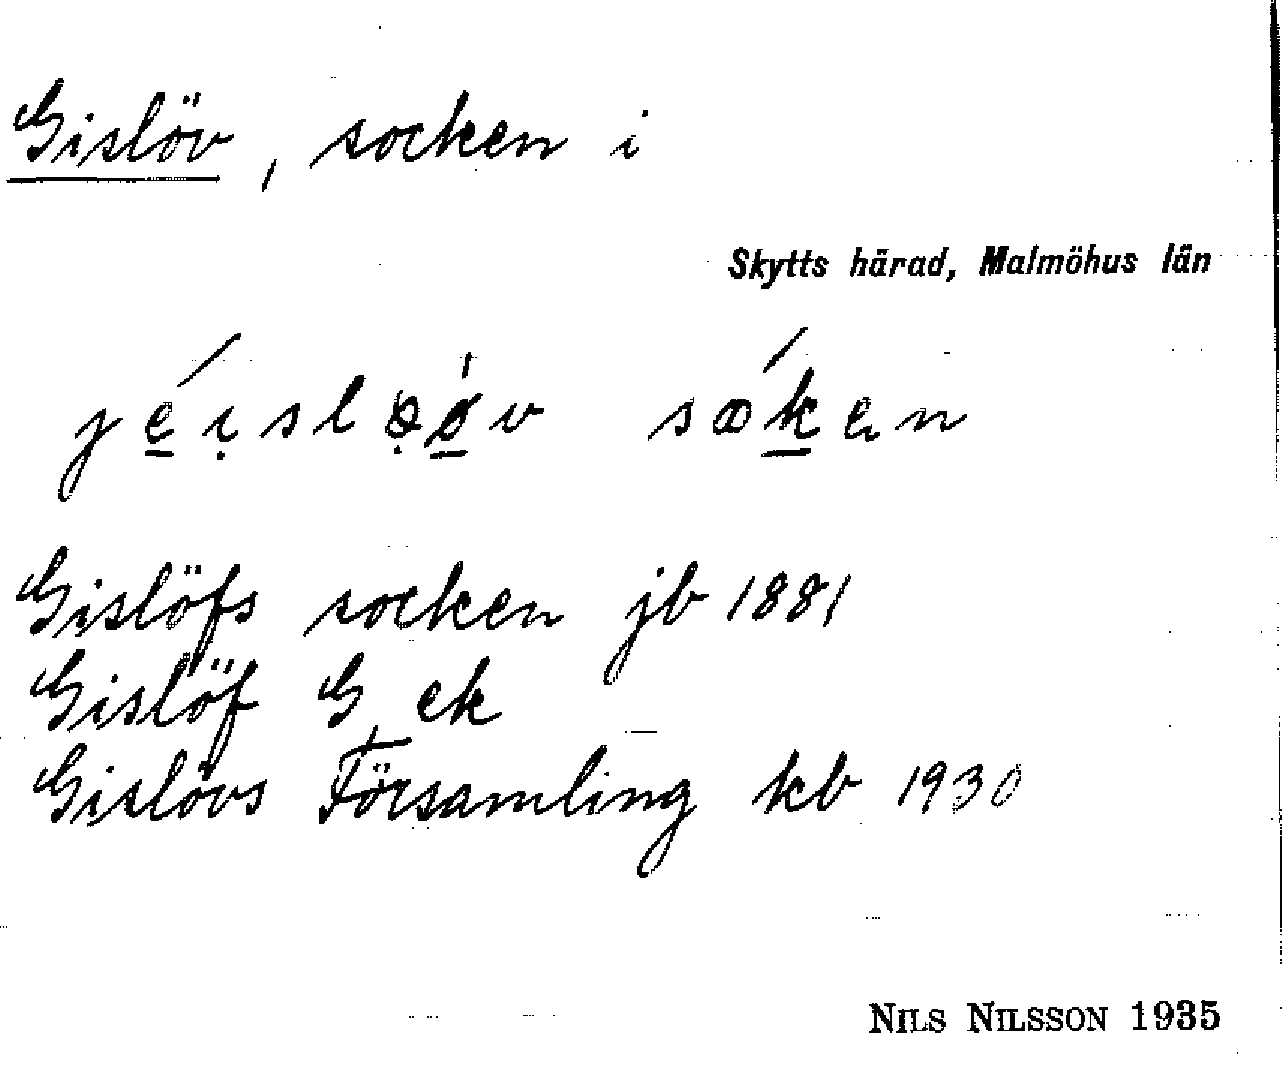 Gislöv, socken i
Skytts härad, Malmöhus län
socken
Gislöfs socken jb 1881
Gislöf G ek
Gislövs Församling kb 1930
NILS NILSSON 1935